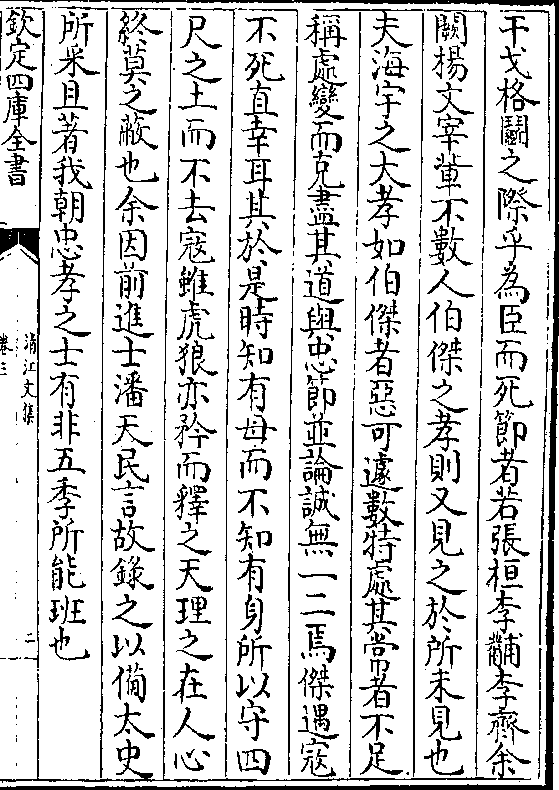 干戈格鬬之際乎為臣而死節者若張桓李黼李齊余
闕楊文宰軰不數人伯傑之孝則又見之於所未見也
夫海宇之大孝如伯傑者惡可遽數特處其常者不足
稱處變而克盡其道與忠節並論誠無一二焉傑遇寇
不死直幸耳其於是時知有母而不知有身所以守四
尺之土而不去寇雖虎狼亦矜而釋之天理之在人心
終莫之蔽也余因前進士潘天民言故錄之以備太史
所采且著我朝忠孝之士有非五季所能班也
欽定四庫全書
清江文集
卷三
二